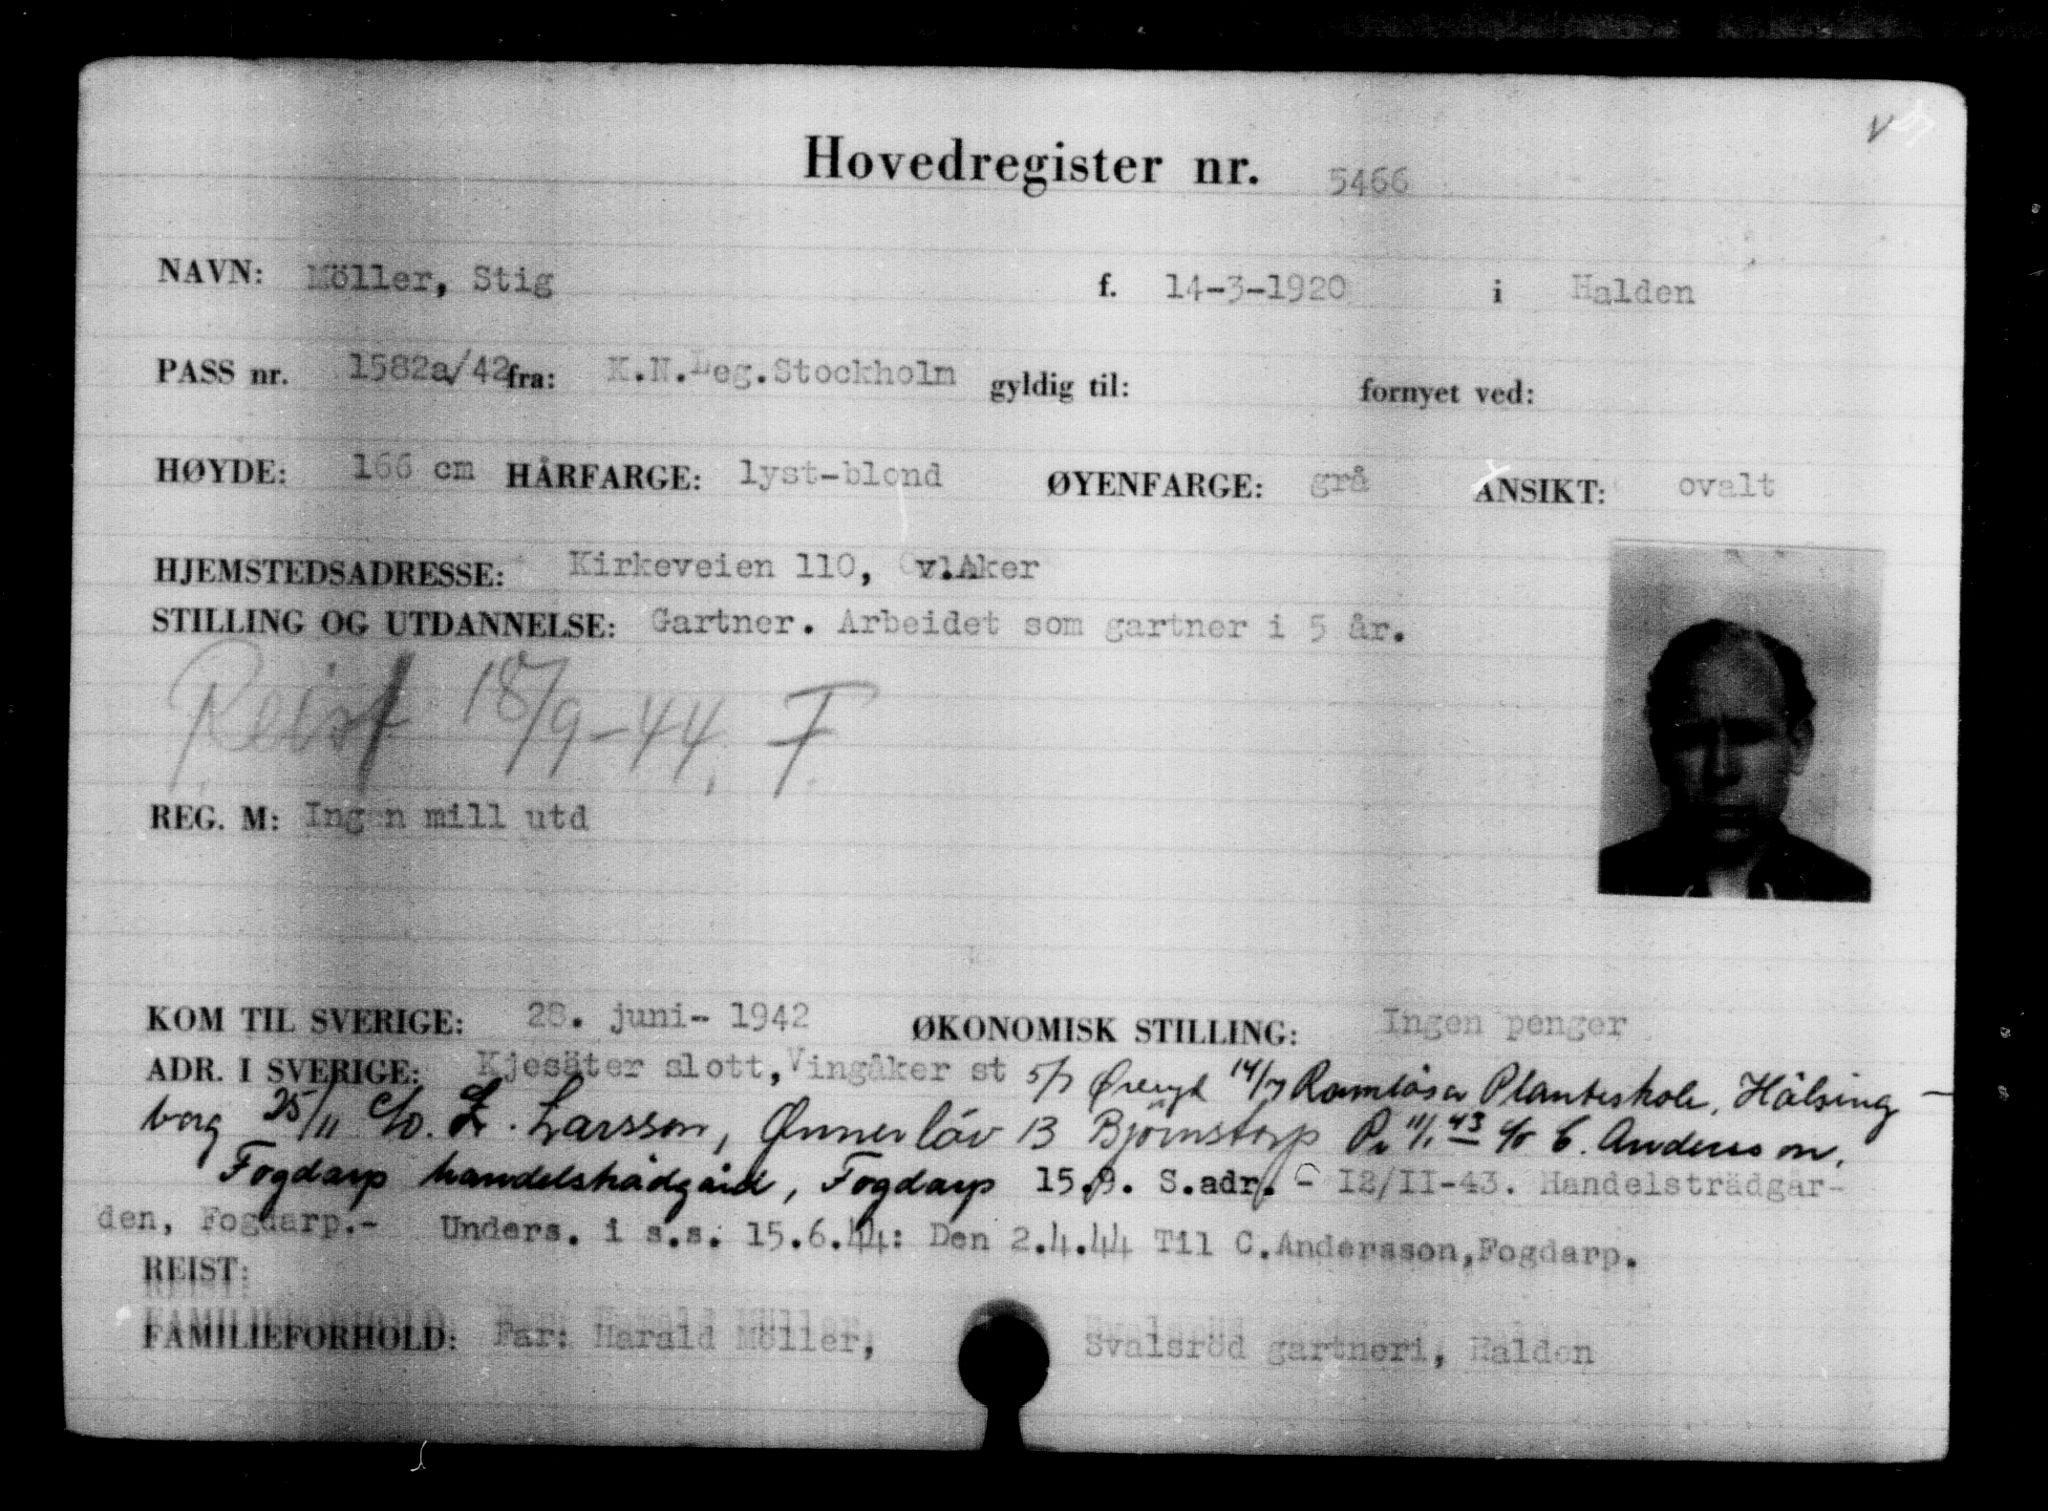 Hovedregister nr. 5466
NAVN: Möller, Stig f. 14-3-1920 i Halden
PASS nr. 1582a/42 fra: K.N.Leg.Stockholm gyldig til: fornyet ved:
HØYDE: 166 cm HÅRFARGE: lyst-blond ØYENFARGE: grå ANSIKT: ovalt
HJEMSTEDSADRESSE: Kirkeveien 110, v.Aker
STILLING OG UTDANNELSE: Gartner. Arbeidet som gartner i 5 år.
Reist 18/9-44. F.
REG. M: Ingen mill utd
KOM TIL SVERIGE: 28. juni- 1942 ØKONOMISK STILLING: Ingen penger
ADR. I SVERIGE: Kjesäter slott, Vingåker st 5/7 14/7 Ramlösa Planteskole, Hälsing-
borg 25/11 c/o. L. Larsson, Ønnerlöv 13 Björnstorp 11/1 43 c/o C. Andersson,
Fogdarp handelsträdgård, Fogdarp 15.9. S.adr. - 12/II-43. Handelsträdgår-
den, Fogdarp.- Unders. i s.s. 15.6.44: Den 2.4.44 Til C.Andersson,Fogdarp.
REIST:
FAMILIEFORHOLD: Far: Harald Möller, Svalsröd gartneri, Halden